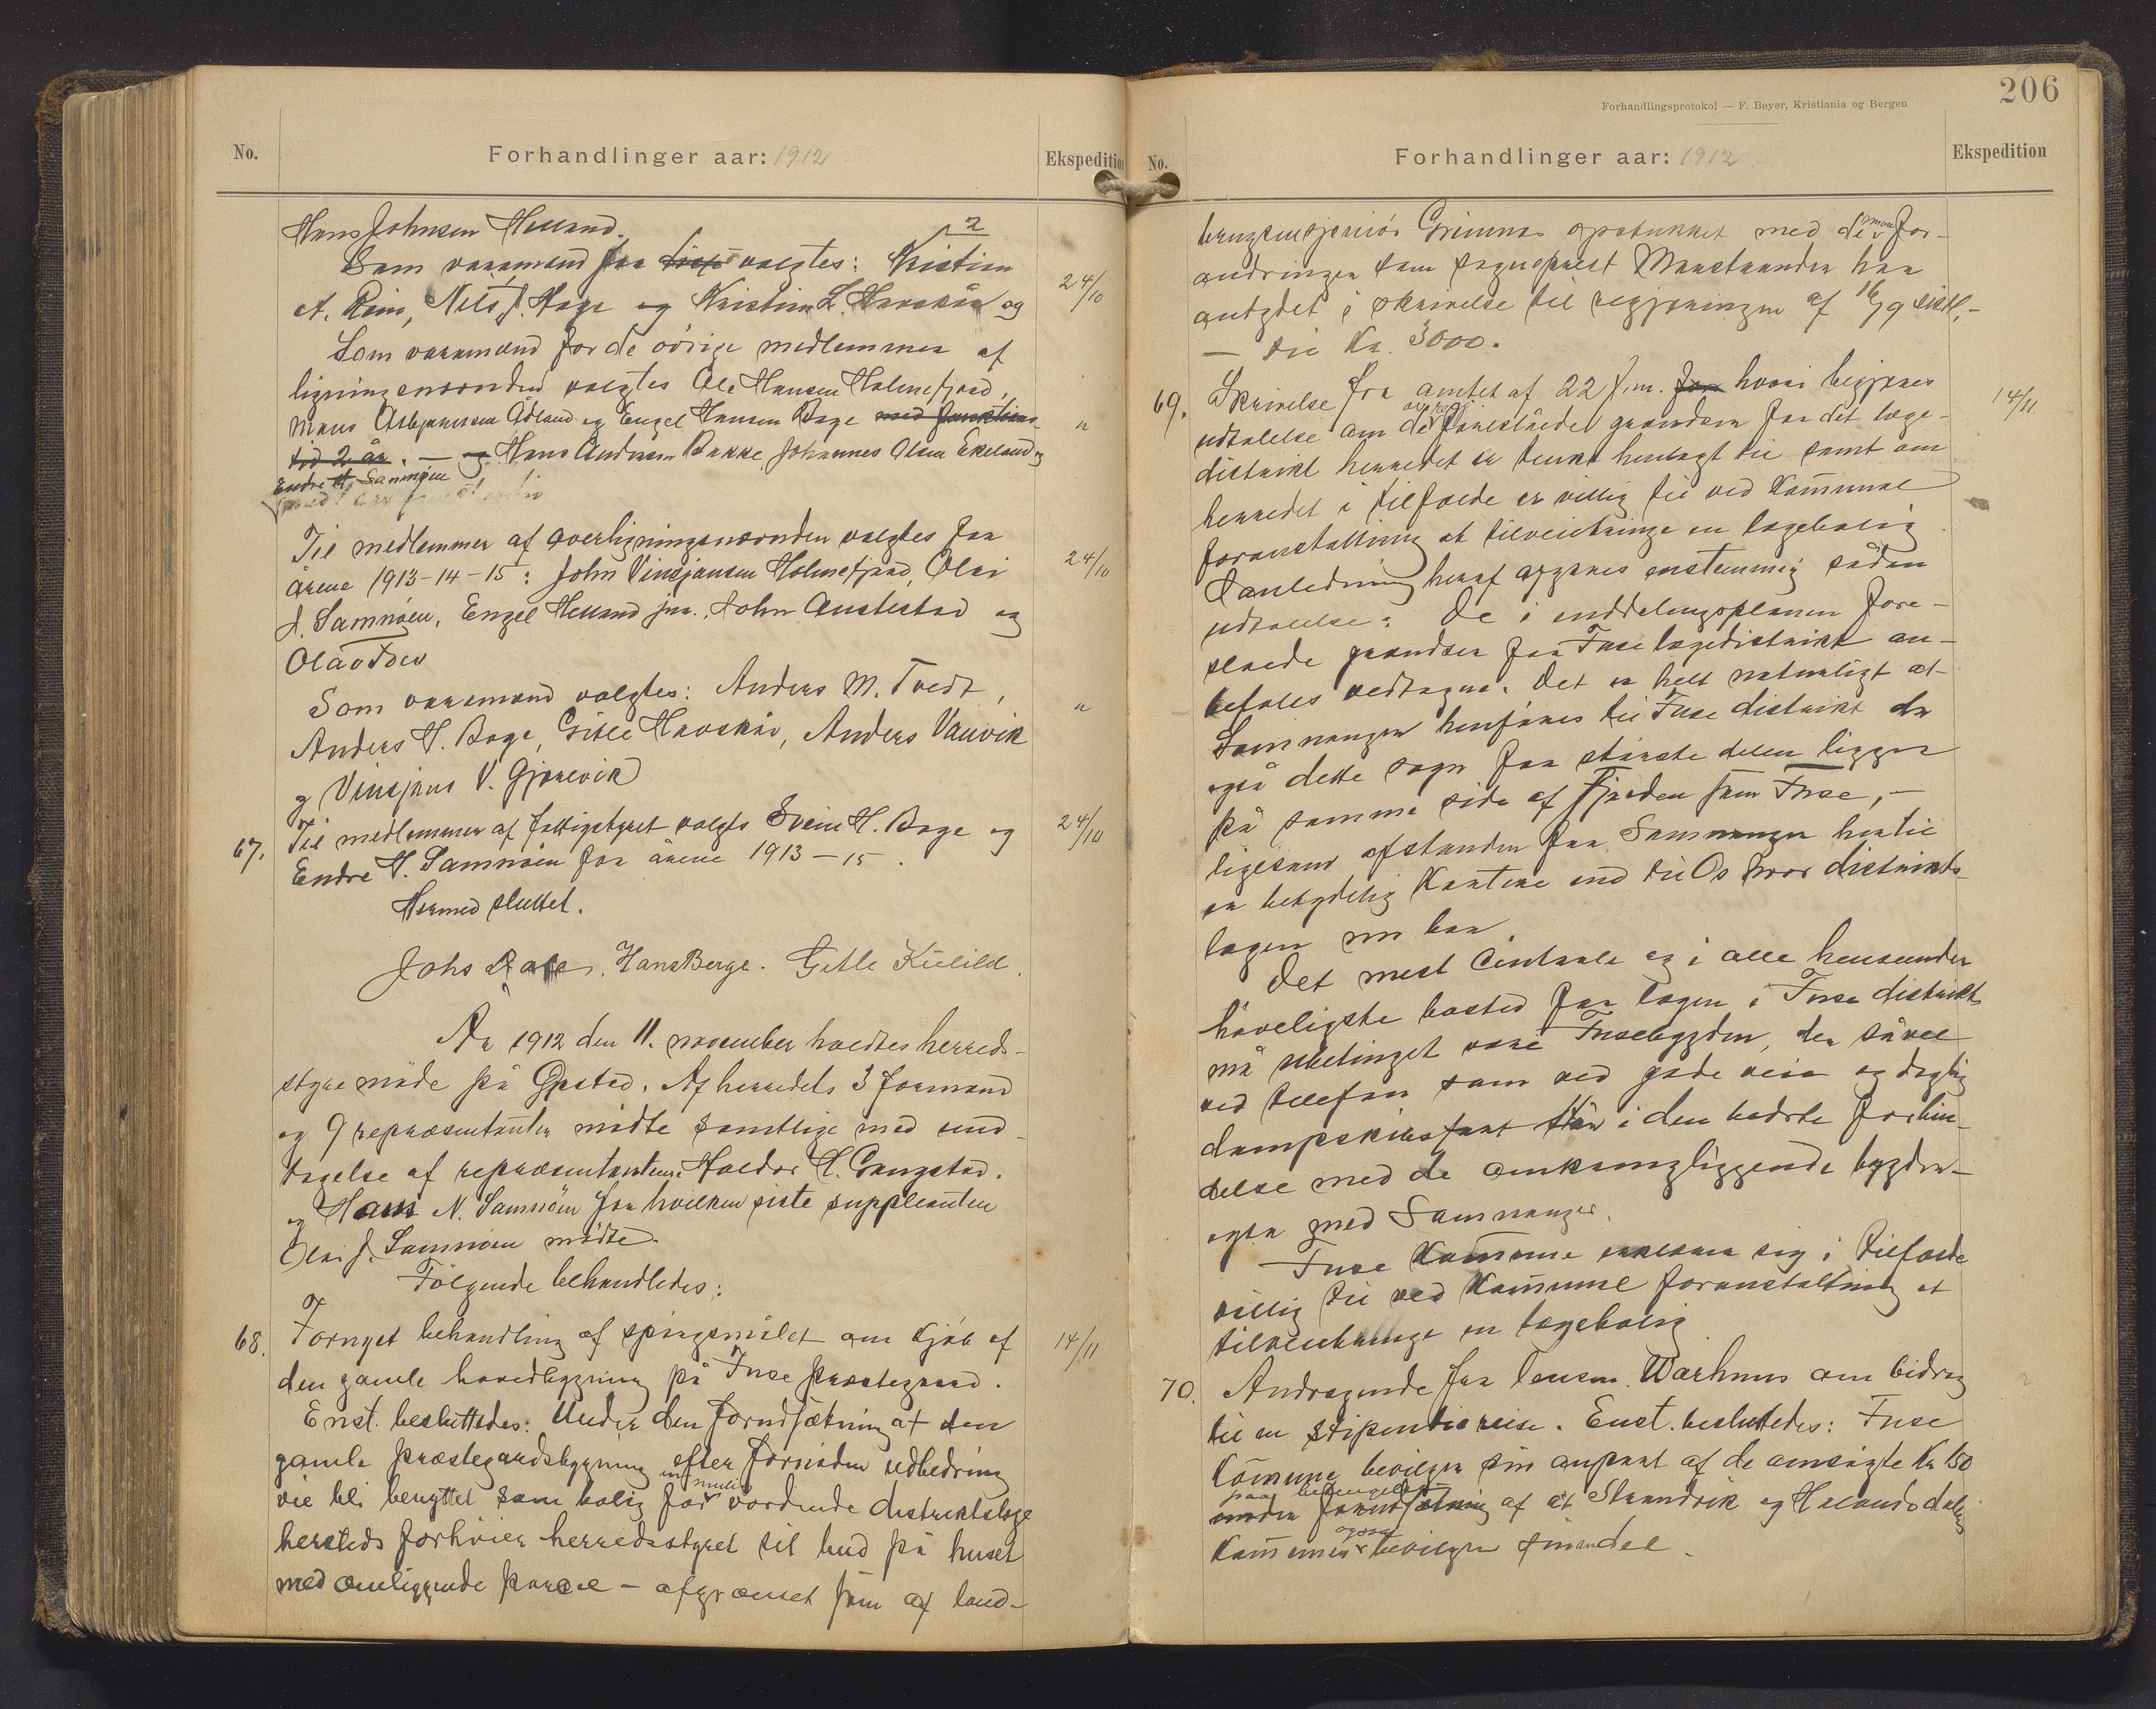 No.
Forhandlinger aar: 1912
Ekspedition
Hans Johnsen Helland.
Som varamænd for disse valgtes: Kristian
A. Rein, Nils J. Hage og Kristian L. Havskår og
24/10
Som varamænd for de øvrige medlemmer af
ligningsnævnden valgtes Ole Hansen Holmefjord,
Mons Asbjørnsen Ådland og Engel Hansen Bage med funktions-
tid 2 år. — og Hans Andreas Bakke, Johannes Olsen Ekeland og
Endre H. Samnøen
"
Til medlemmer af overligningsnævnden valgtes for
årene 1913-14-15: John Vinsjansen Holmefjord, Olai
24/10
J. Samnøen, Engel Helland jnr., John Austestad og
Olav Foer
Som varamænd valgtes: Anders M. Tvedt,
"
Anders H. Bage, Gitle Havskår, Anders Vauvik
og Vinsjans V. Gjønevik
67. Til medlemmer af fattigstyret valgtes Svein H. Bage og
24/10
Endre H. Samnøen for årene 1913 — 15.
Hermed sluttet.
Johs Dale. Hans Berge. Gitle Kilild.
År 1912 den 11. november holdtes herreds-
styremøde på Opstad. Af herredets 3 formænd
og 9 repræsentanter mødte samtlige med und-
tagelse af repræsentantene Haldor H. Gangstad.
og Hans N. Samnøen for hvilken siste suppleanten
Olai J. Samnøen mødte.
Følgende behandledes:
68. Fornyet behandling af spørgsmålet om kjøb af
14/11
den gamle hovedbygning på Fuse præstegaard.
Enst. besluttedes: Under den forudsætning at den
gamle præstegardsbygning efter fornøden udbedring
vil bli benyttet som bolig for en mulig vordende distriktslæge
hersteds forhøier herredsstyret sit bud på huset
med omliggende parcel — afgrænset som af land-
206
Forhandlingsprotokol — F. Beyer, Kristiania og Bergen
No.
Forhandlinger aar: 1912
Ekspedition
brugsingeniør Grimnes opstukket med de for-
andringer som sogneprest Monstranden har
antydet i skrivelse til regjeringen af 16/9 sistl,-
— til Kr. 3000.
69. Skrivelse fra amtet af 22 f.m. for hvori begjæres
14/11
udtalelse om de foreslåede grændser for det læge-
distrikt herredet er tænkt henlagt til samt om
herredet i tilfælde er villig til ved kommunal
foranstaltning at tilveiebringe en lægebolig
I anledning heraf afgaves enstemmig sådan
udtalelse: De i inddelingsplanen fore-
slåede grændser for Fuse lægedistrikt an-
befales vedtagne. Det er helt naturligt at
Samnanger henføres til Fuse distrikt da
også dette sogn for største delen ligger
på samme side af fjorden som Fuse,—
ligesom afstanden fra Samnanger hertil
er betydelig kortere end til Os hvor distrikts-
lægen nu bor.
Det mest centrale og i alle henseender
høveligste bosted for lægen i Fuse distrikt
må ubetinget være Fusebygden, der såvel
ved telefon som ved gode veie og daglig
dampskibsfart står i den bedste forbin-
delse med de omkringliggende bygder—
også med Samnanger.
Fuse kommune erklærer sig i tilfælde
villig til ved kommunal foranstaltning at
tilveiebringe en lægebolig
70. Andragende fra lensm. Warhuus om bidrag
til en stipendiereise. Enst. besluttedes: Fuse
Kommune bevilger sin anpart af de ansøgte Kr 150
paa betingelse
under forudsætning af at Strandvik og Hålandsdalens
kommuner ogsaa bevilger sin andel.